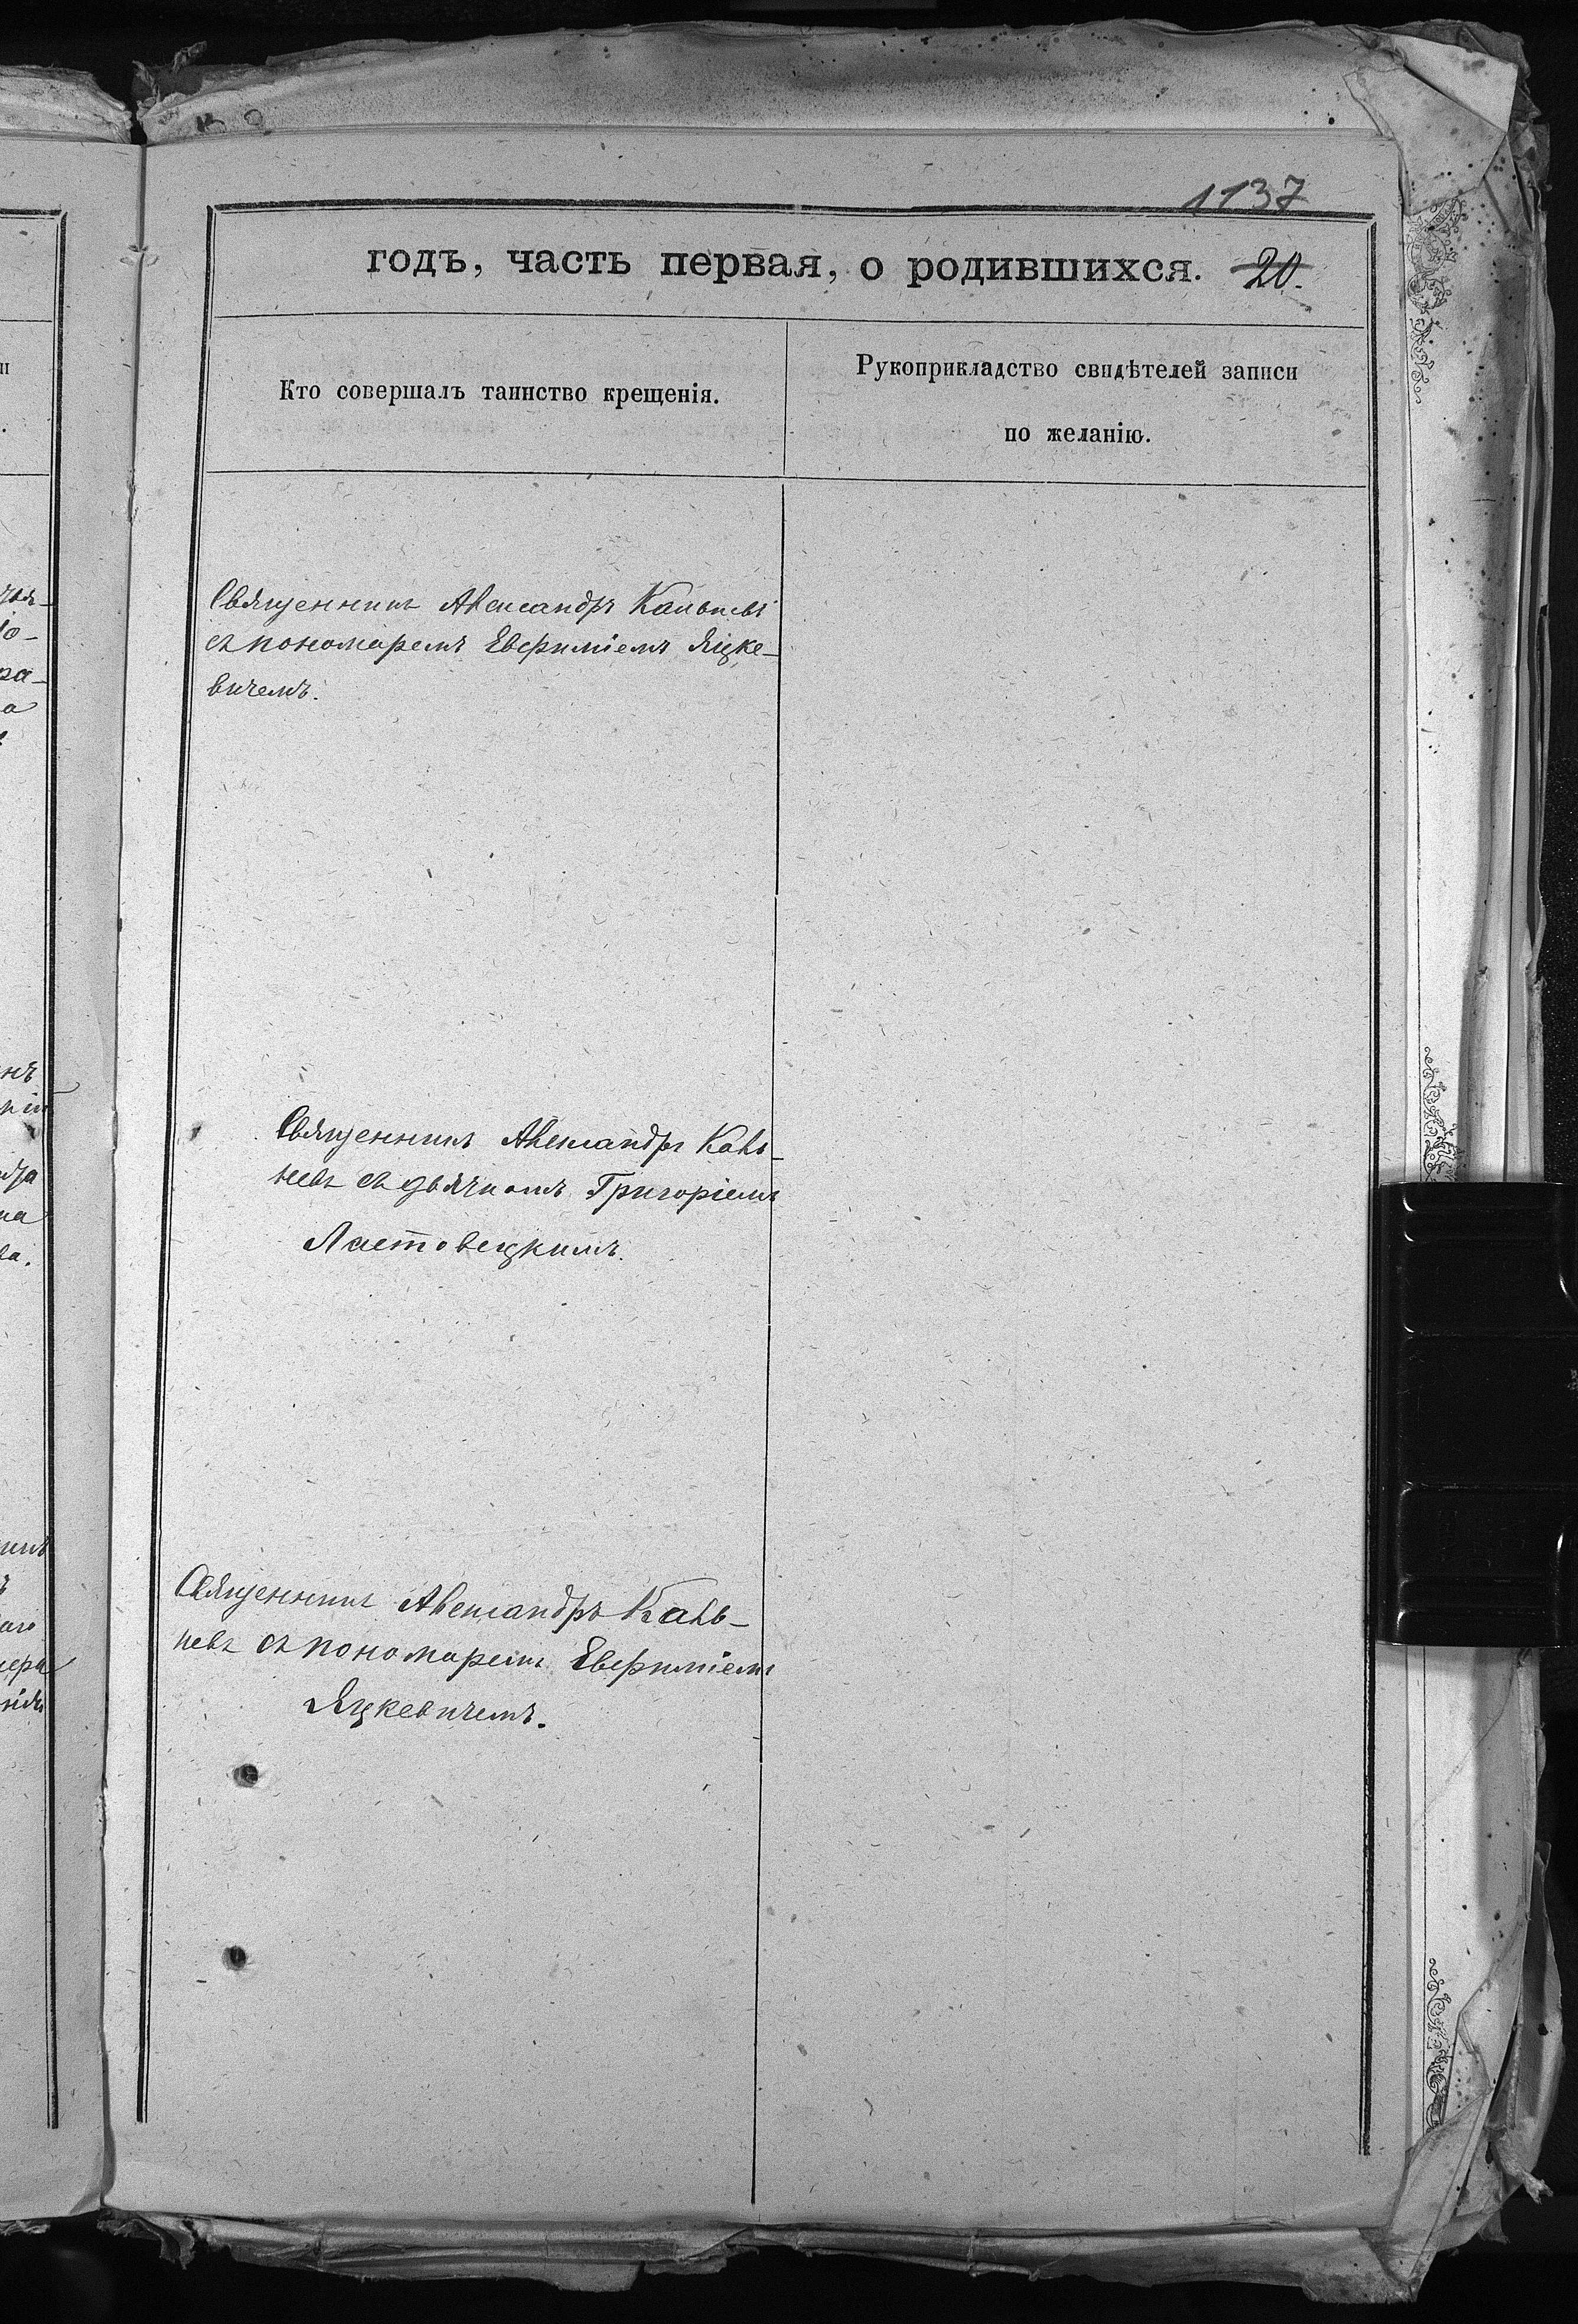 1137
годъ, часть первая, о родившихся. 20.
Кто совершалъ таинство крещенія.
Рукоприкладство свидѣтелей записи
по желанію.
Священникъ Александръ
съ пономаремъ Евфиміемъ Яцке-
вичемъ.
Священникъ Александръ Каль-
невъ съ дьячкомъ Григоріемъ
Ластовецкимъ.
Священникъ Александръ Каль-
невъ съ пономаремъ Евфиміемъ
Яцкевичемъ.